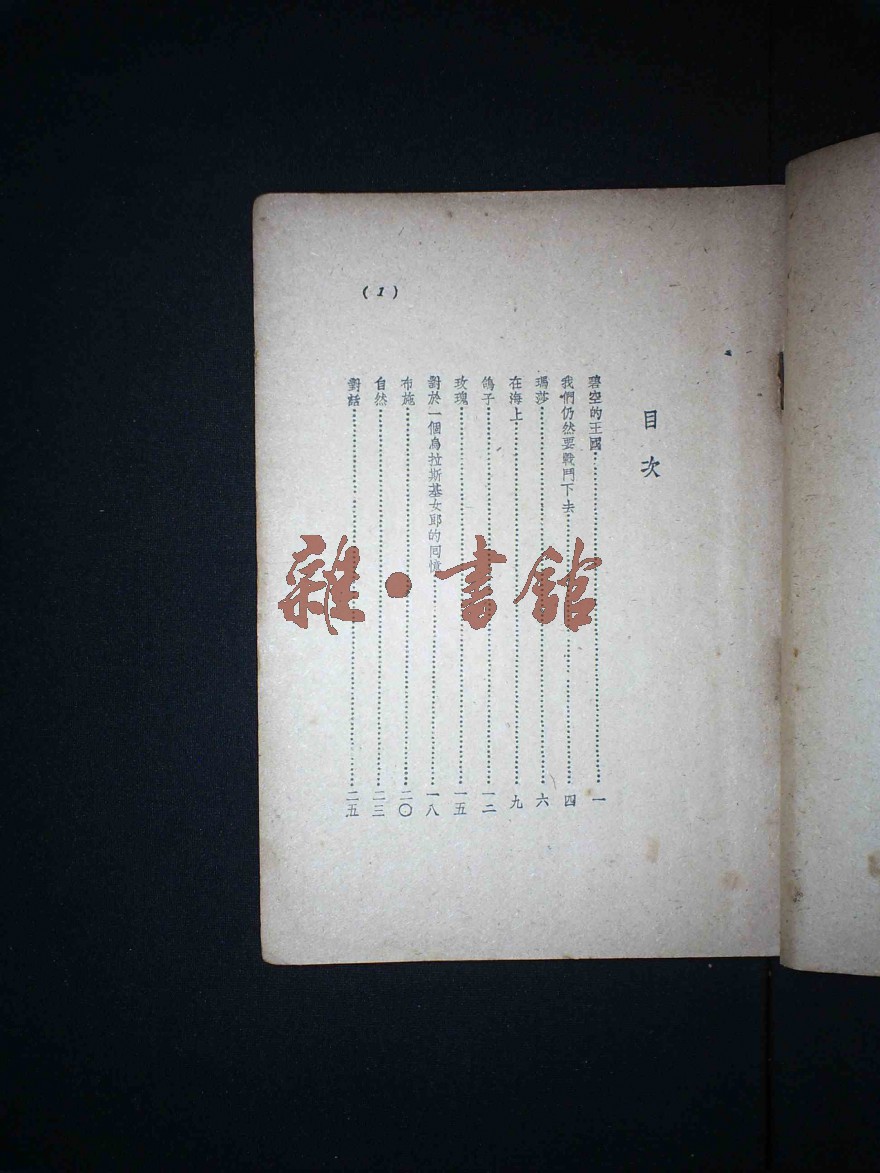 (1)
目次
碧空的王國……一
我們仍然要戰鬥下去……四
瑪莎……六
在海上……九
鴿子……一二
玫瑰……一五
對於一個烏拉斯基女郎的回憶……一八
布施……二〇
自然……二三
對話……二五
雜·書館